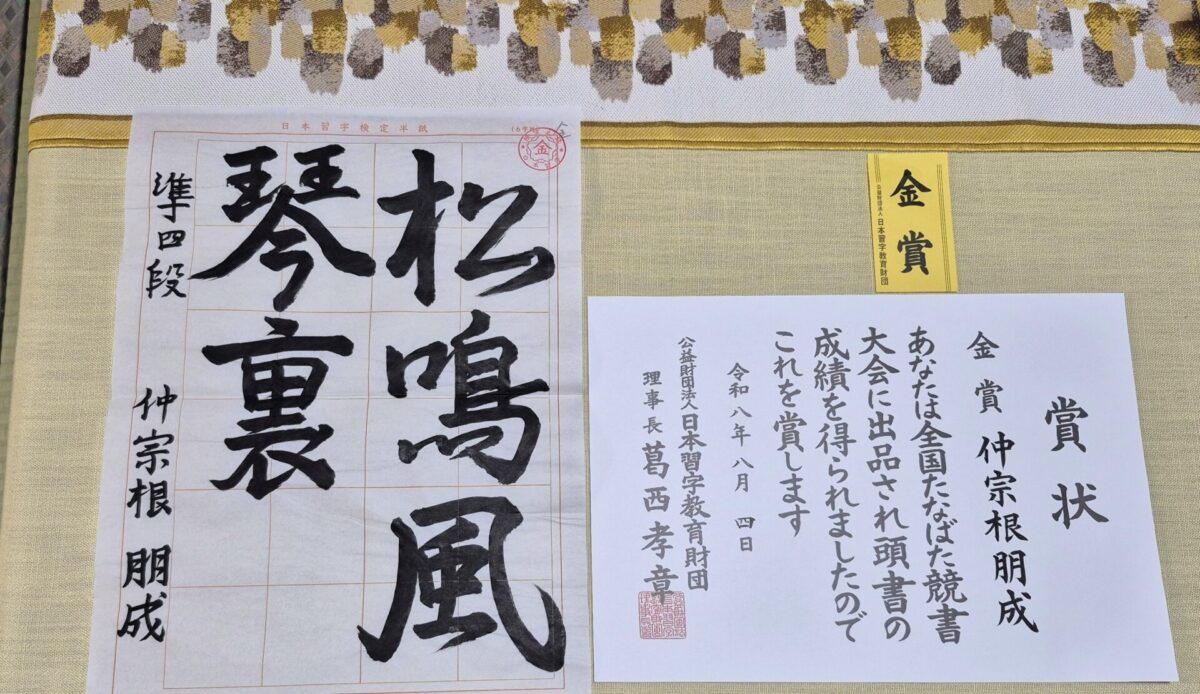 日本習字検定半紙
(6字用)
金
松鳴風
琴裏
準四段 仲宗根 朋成
金賞
公益財団法人 日本習字教育財団
賞状
金賞 仲宗根朋成
あなたは全国たなばた競書
大会に出品され頭書の
成績を得られましたので
これを賞します
令和八年八月 四日
公益財団法人日本習字教育財団
理事長 葛西孝章